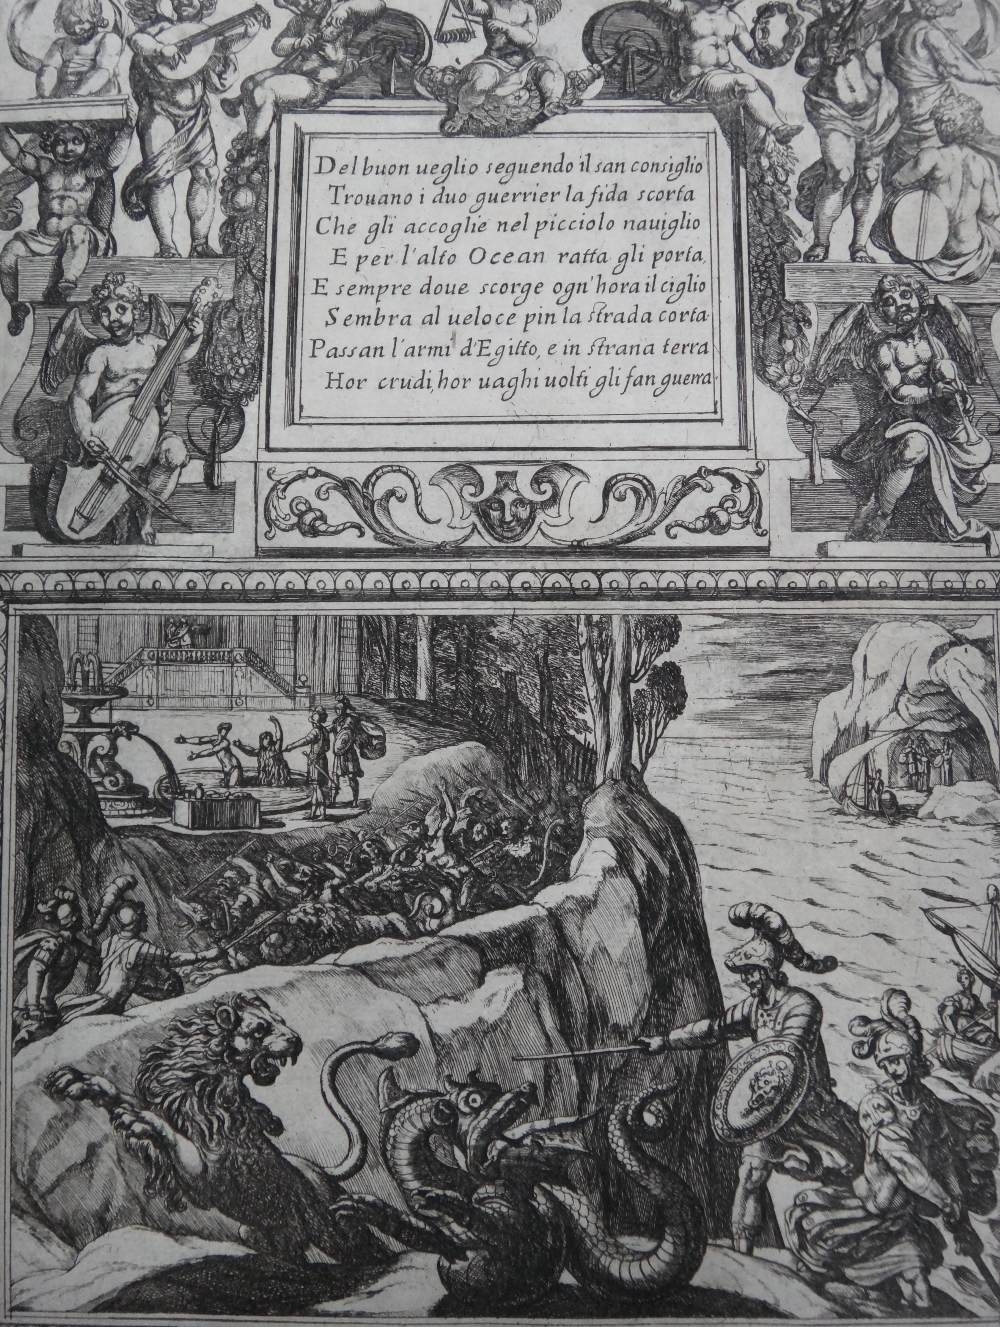 Del buon ueglio seguendo il san consiglio
Trouano i duo guerrier la fida scorta
Che gli accoglie nel picciolo nauiglio
E per l'alto Ocean ratta gli porta,
E sempre doue scorge ogn'hora il ciglio
Sembra al ueloce pin la strada corta
Passan l'armi d'Egitto, e in strana terra
Hor crudi, hor uaghi uolti gli fan guerra.